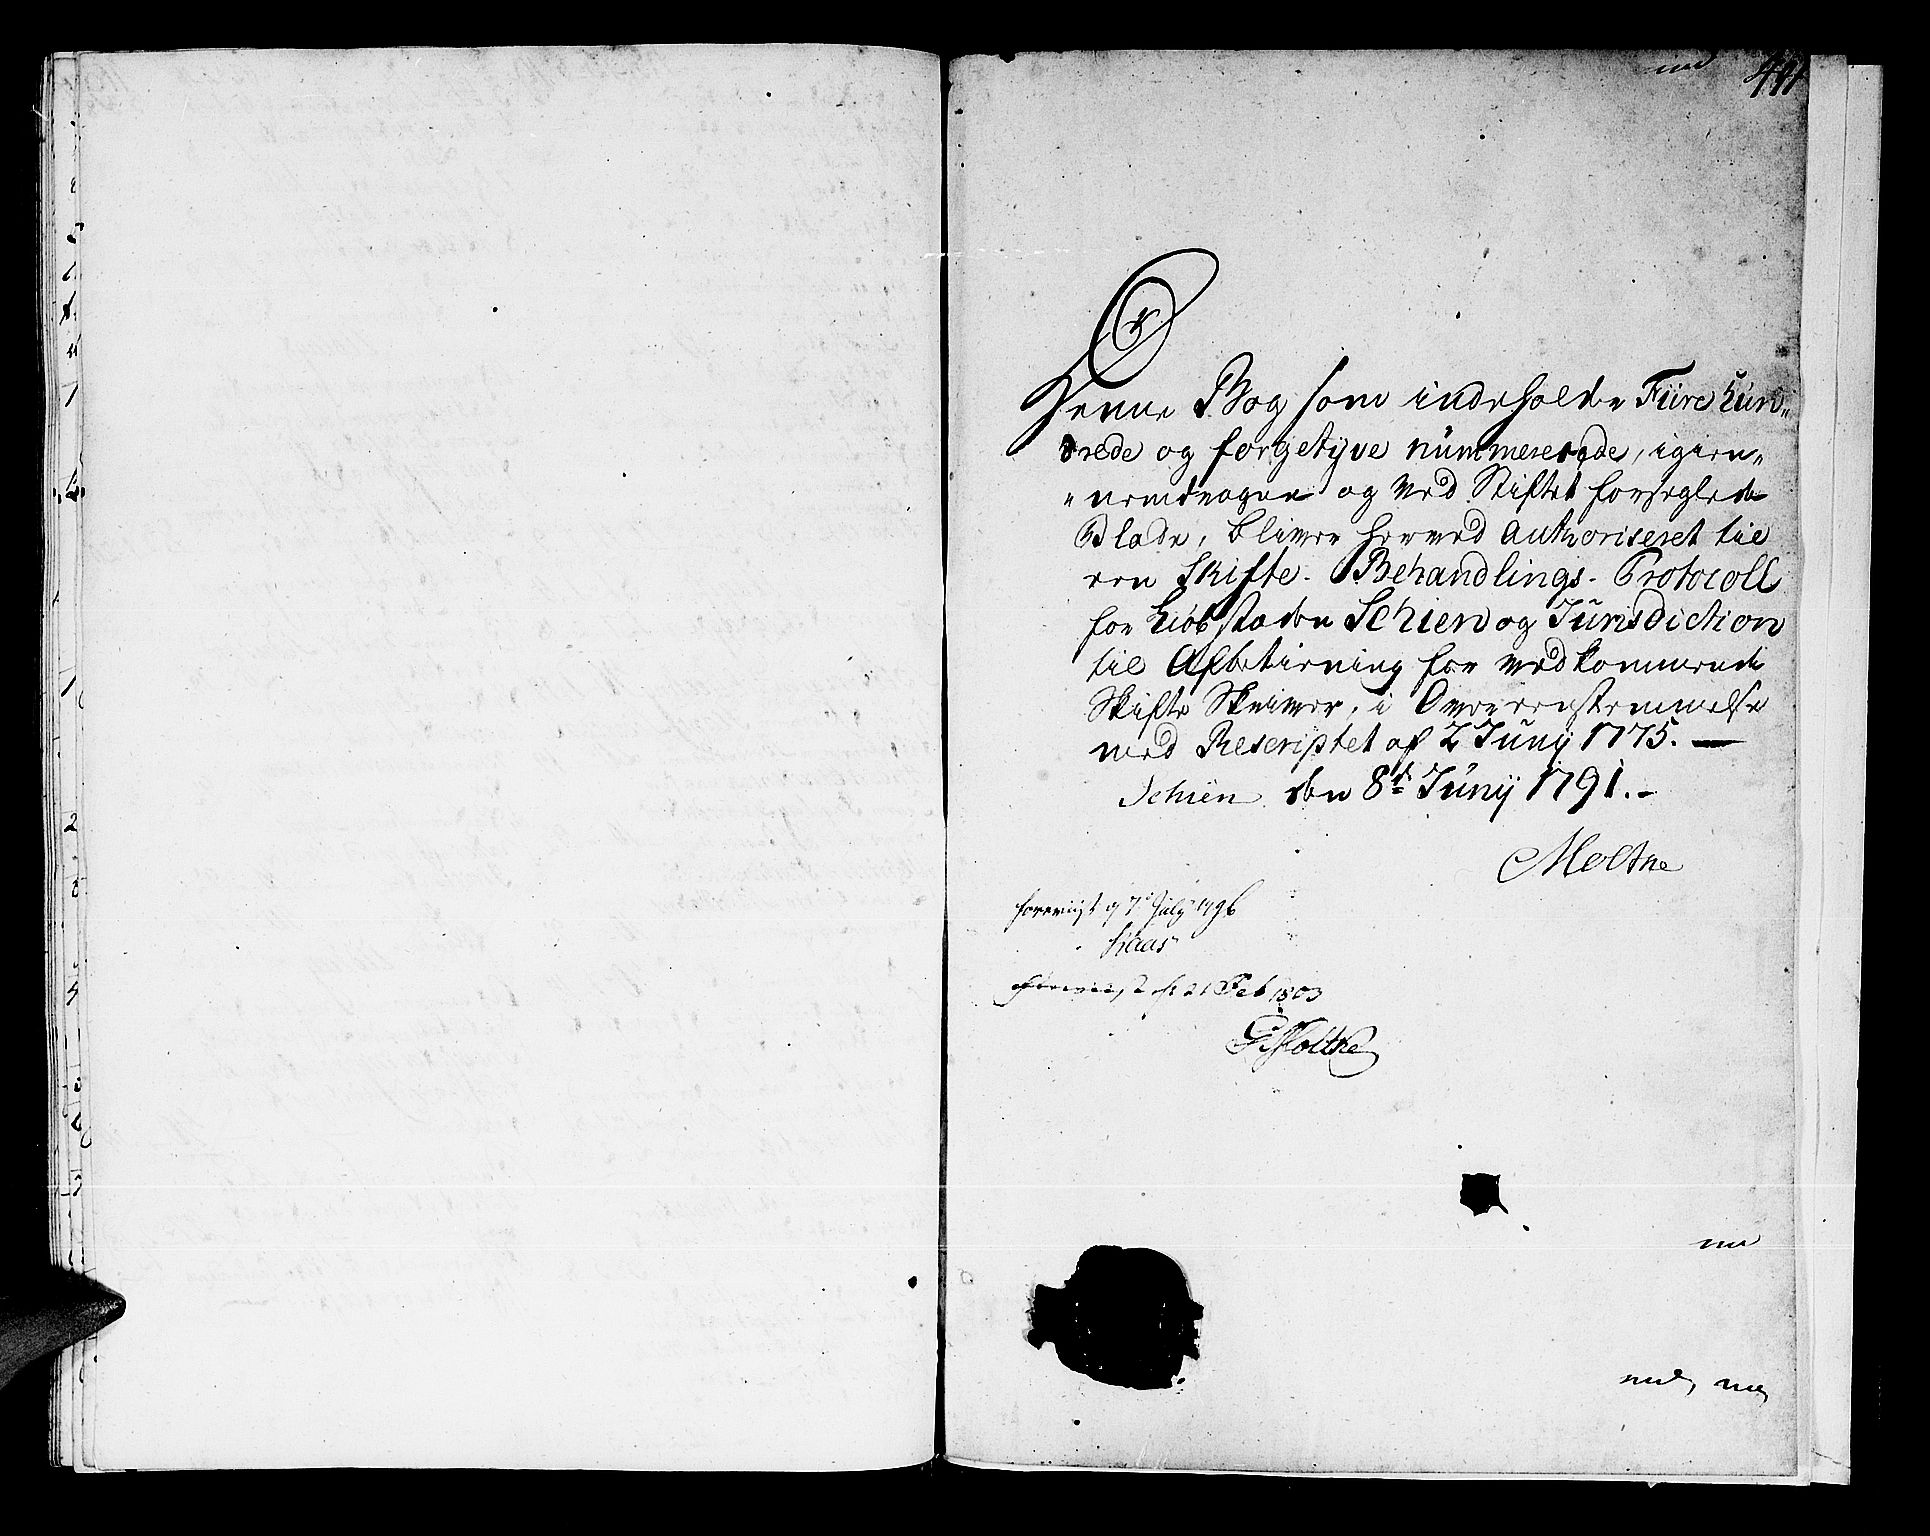 441
Denne Bog som indeholder Fiire hun„
drede og forgetyve nümmererede, igien„
„nemdragne og ved Stiftet forseglede
Blade, bliver herved Authoriseret til
een Skifte-Behandlings-Protocoll
for Kiøbstaden Schien og Jurisdiction
til Afbetiening for vedkommende
Skifte Skriver, i Overeenstemmelse
med Rescriptet af 2 Junij 1775. —
Schien den 8de Junij 1791.-
Moltke
foreviist 7 July 1796
Kaas
foreviist 21 Feb 1803
G Moltke